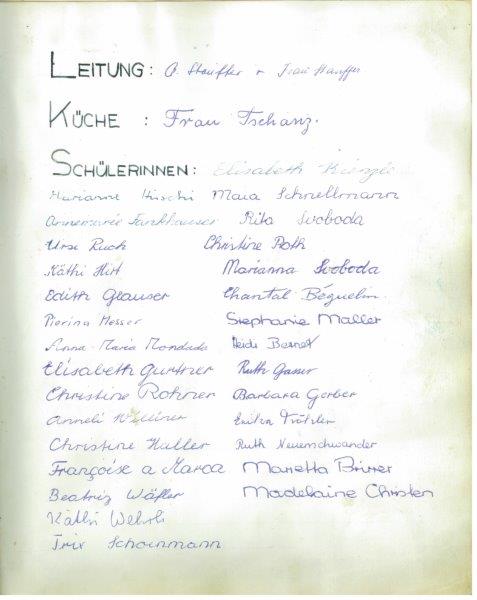 LEITUNG: A. Stauffer + Frau Stauffer
KÜCHE : Frau Tschanz.
SCHÜLERINNEN: Elisabeth Kienzle
Marianne Maia Schnellmann
Annemarie Fankhauser Rita Svoboda
Ursi Ruch Christine Roth
Käthi Hirt Marianna Svoboda
Edith Glauser Chantal Béguelin
Pierina Messer Stephanie Maller
Anna-Maria Mondada Heidi Bernet
Elisabeth Gurtner Ruth Gasser
Christine Rohner Barbara Gerber
Anneli
Christine Haller Ruth Neuenschwander
Françoise a Marca Marietta Birrer
Beatriz Wäfler Madelaine Christen
Käthi Wehrli
Trix Schoinmann